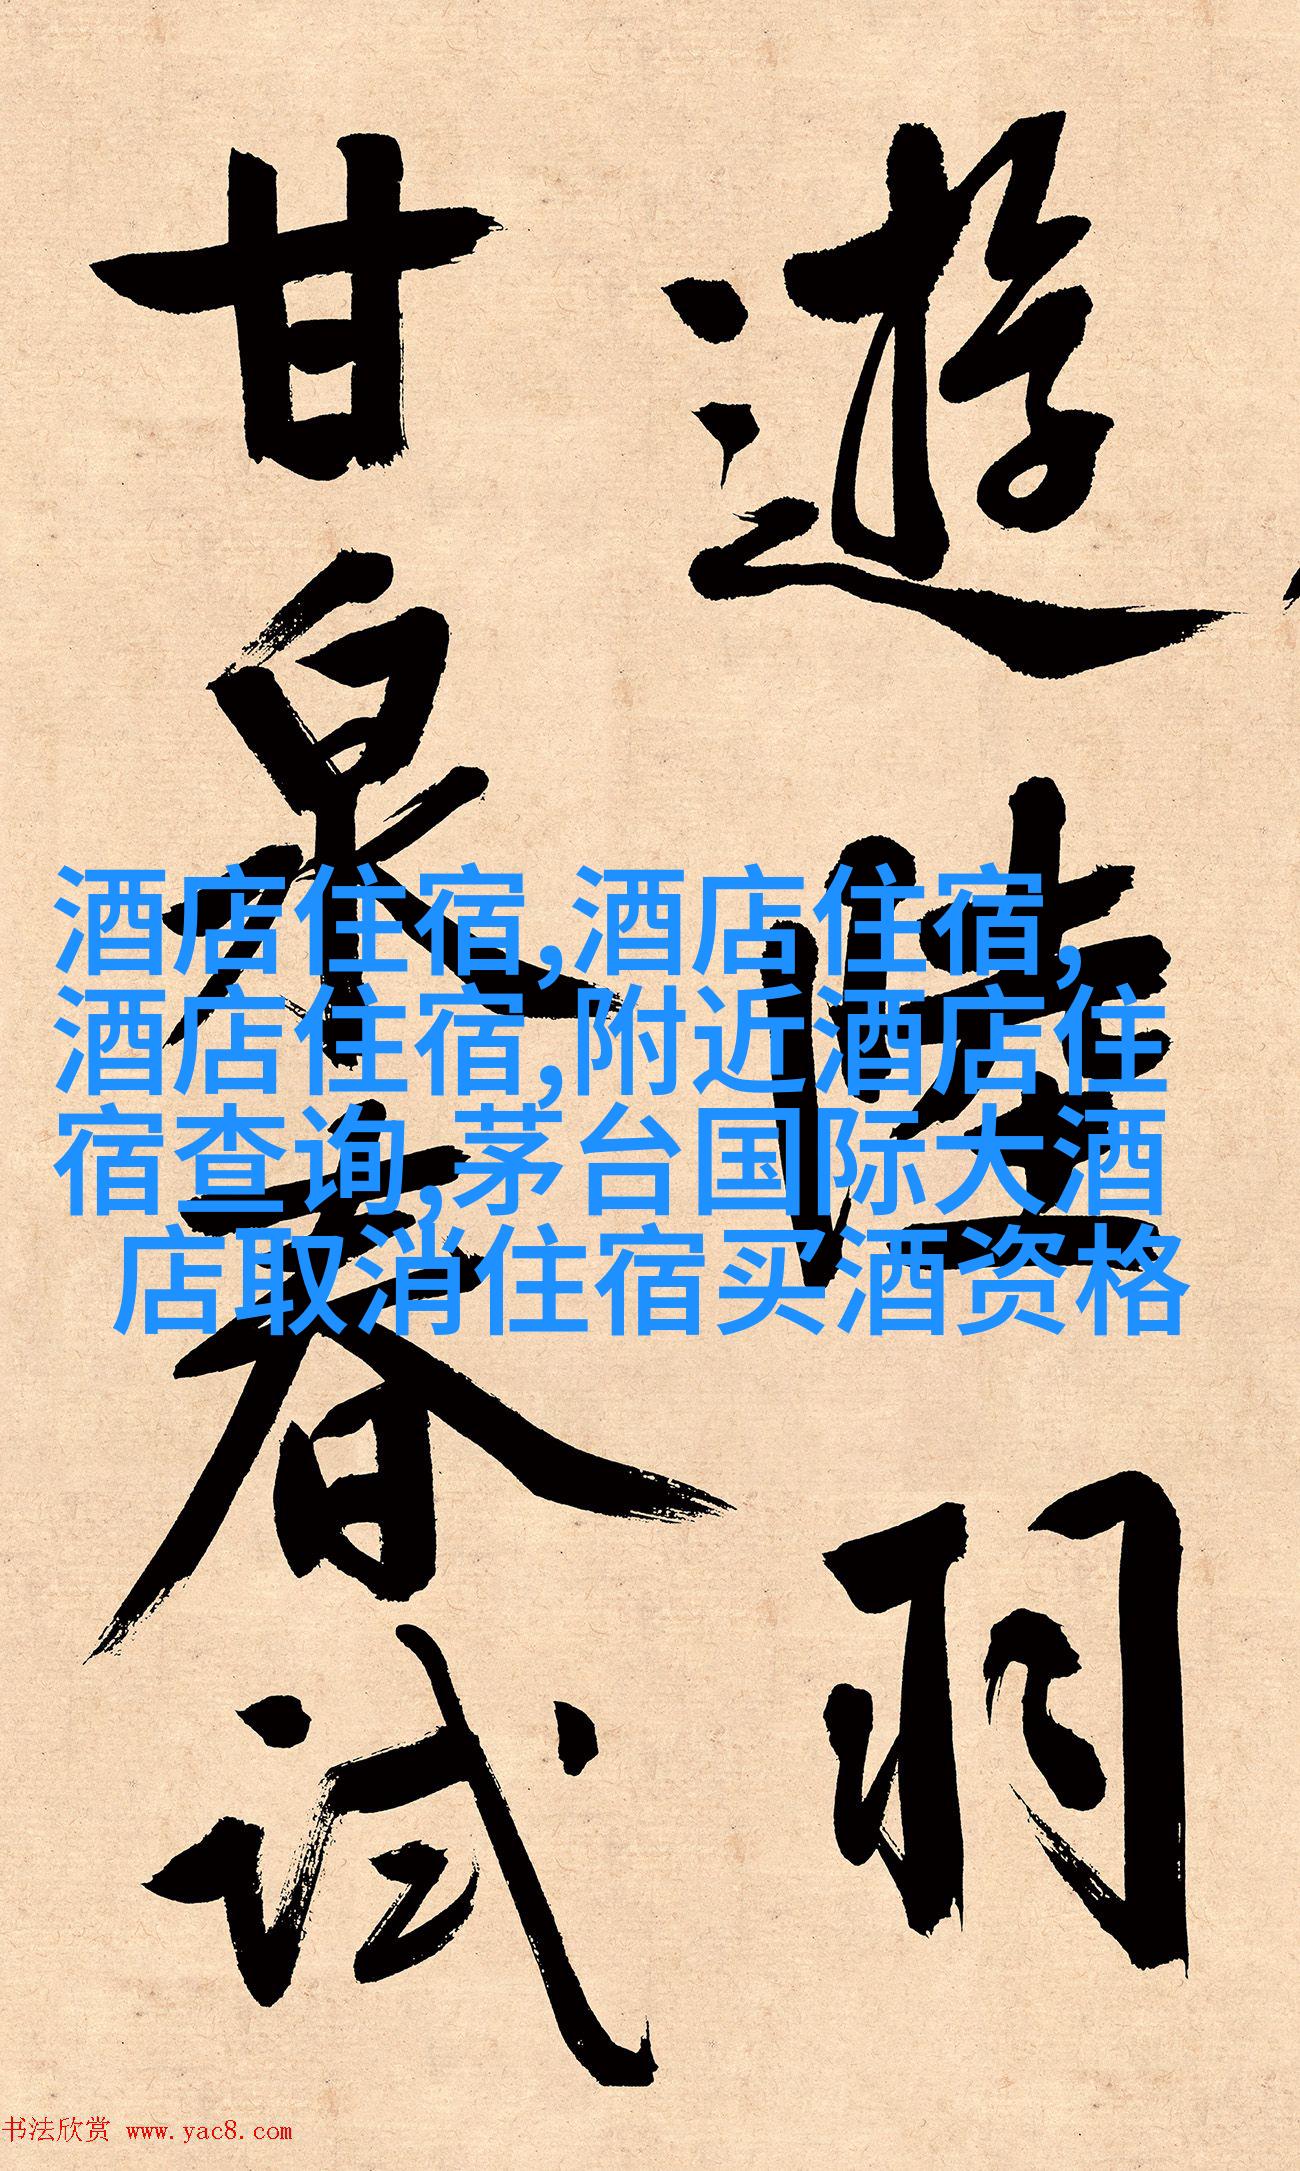 遊陸羽
甘泉春试
酒店住宿,酒店住宿,
酒店住宿,附近酒店住
宿查询,茅台国际大酒
店取消住宿买酒资格
书法欣赏 www.yac8.com